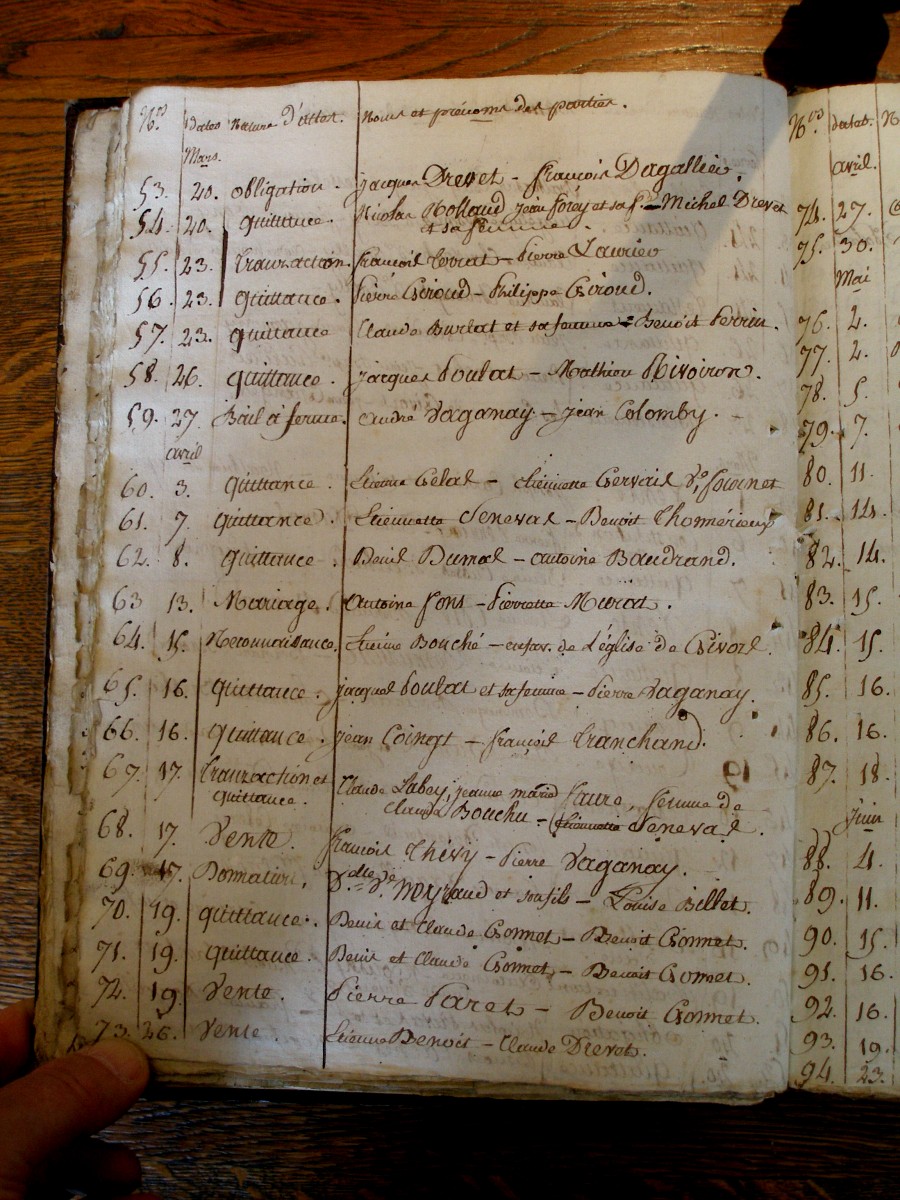 Nos dates Nature d'actes. Noms et prénoms des parties.
Mars.
53. 20. obligation. jacques Drevet - françois Dagallier.
54. 20. quittance. Nicolas Rolland jean forey et sa f. - Michel Drevet
et sa femme.
55. 23. transaction. françois - Pierre Laurier
56. 23. quittance. Pierre Giroud - Philippe Giroud.
57. 23. quittance Claude Burlat et sa femme - Benoit Perrin.
58. 26. quittance. jacques Poulat - Mathieu Rivoiron.
59. 27. Bail a ferme. andré Vaganay - jean Colomby.
avril
60. 3. quittance. Etienne - Etiennette Gervais Ve. fournet
61. 7. quittance. Etiennette Seneval - Benoit Thomérieux
62. 8. quittance. Denis Dumas - antoine Baudrand.
63 13. Mariage. antoine fons - Pierrette Murat.
64. 15. Reconnaissance, Etienne Bouché - en fav. de L'église de Givors.
65. 16. quittance. jacques Poulat et sa femme - Pierre Vaganay.
66. 16. quittance. jean Coingt - françois tranchand.
67. 17. transaction et Claude Labey, jeanne marie faure, femme de
quittance. claude Bouchu - Etiennette Seneval.
68. 17. Vente. françois Thévy - Pierre Vaganay.
69. 17. Donnation, Ve Meyraud et son fils - Louise Billet.
70. 19. quittance. Denis et Claude Gonnet - Benoit Gonnet.
71. 19. quittance. Denis et Claude Gonnet - Benoit Gonnet.
72. 19. Vente. Pierre Paret - Benoit Gonnet.
73. 26. Vente. Etienne Benoit - Claude Drevet.
Nos dates. N
avril.
74. 27.
75. 30.
Mai
76. 2.
77. 2.
78. 5.
79. 7.
80. 11.
81. 14.
82. 14.
83. 15.
84. 15.
85. 16.
86. 16.
87. 18.
juin
88. 4.
89. 11.
90. 15.
91. 16.
92. 16.
93. 19.
94. 23.